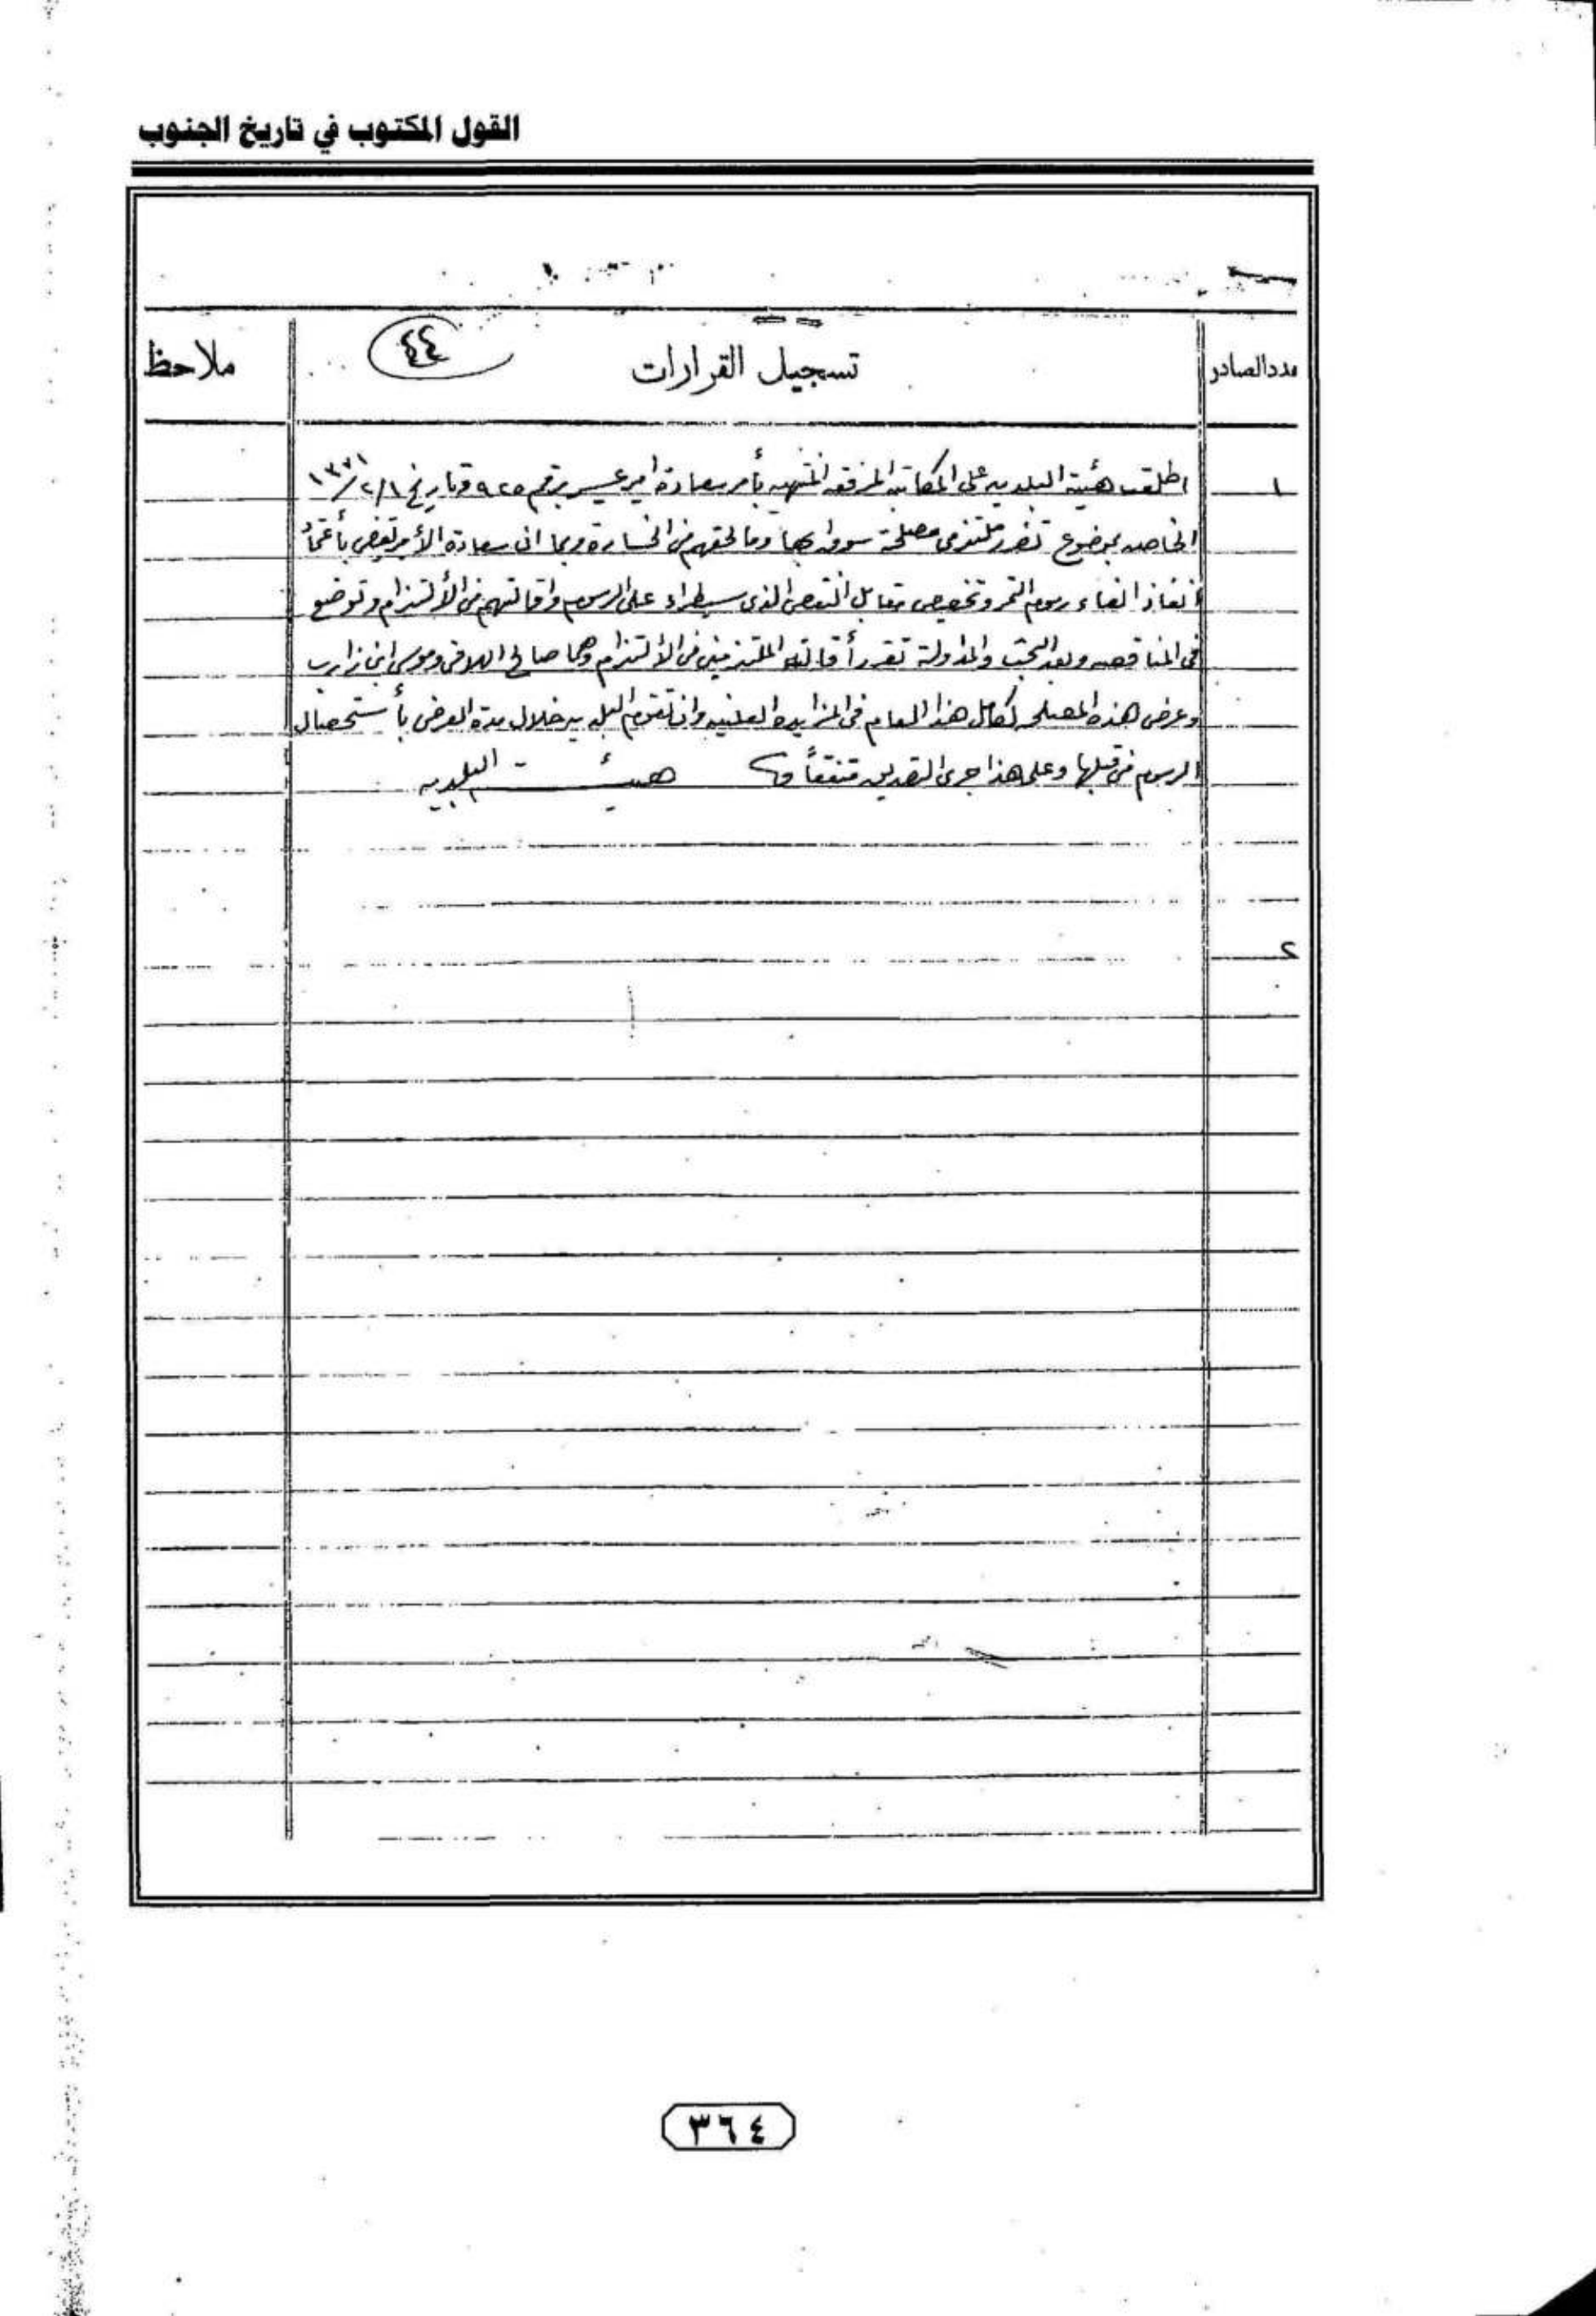 القول المكتوب في تاريخ الجنوب
عدد الصادر
تسجيل القرارات
٤٤
ملاحظ
١ اطلعت هيئة البلديه على المكاتبه المرفقه المنتهيه بأمر سعادة امير عسير برقم ٩٢٥ وتاريخ ٢/١/ ١٣٧١
الخاصه بموضوع تضرر ملتزمى مصلحة سوق ابها وما لحقهم من الخسارة وبما ان سعادة الأمير يقضى
انفاذ الغاء رسوم التمر وتخصيص مقابل النقص الذى سيطراء على الرسوم واقالتهم من الألتزام وتوضع
فى المناقصه وبعد البحث والمداولة تقرر أقالة الملتزمين من الألتزام وهما صالح وموسى ابن زارب
وعرض هذه المصلحه لكامل هذا العام فى المزايده العلنيه وان تقوم البلديه خلال مدة العرض بأستحصال
الرسوم من قبلها وعلى هذا جرى التصديق متفقاً
هيئة البلديه
٢
٣٦٤